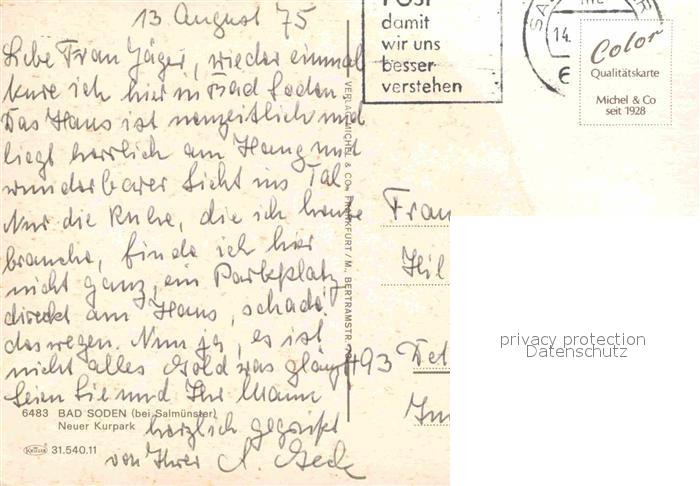 13 August 75
Liebe Frau Jäger, wieder einmal
kure ich hier in Bad Soden.
Das Haus ist neuzeitlich und
liegt herrlich am Hang mit
wunderbarer Sicht ins Tal
Nur die Ruhe, die ich heute
brauche, finde ich hier
nicht ganz, ein Parkplatz
direkt am Haus, schade!
deswegen. Nun ja, es ist
nicht alles Gold was glänzt
Seien Sie und Ihr Mann
herzlich gegrüßt
von Ihrer A. Geck
6483 BAD SODEN (bei Salmünster)
Neuer Kurpark
KRÜGER 31.540.11
VERLAG MICHEL & CO., FRANKFURT/M., BERTRAMSTR.
POST
damit
wir uns
besser
verstehen
14.
Color
Qualitätskarte
Michel & Co
seit 1928
Frau
Hil
493 Det
Im
privacy protection
Datenschutz